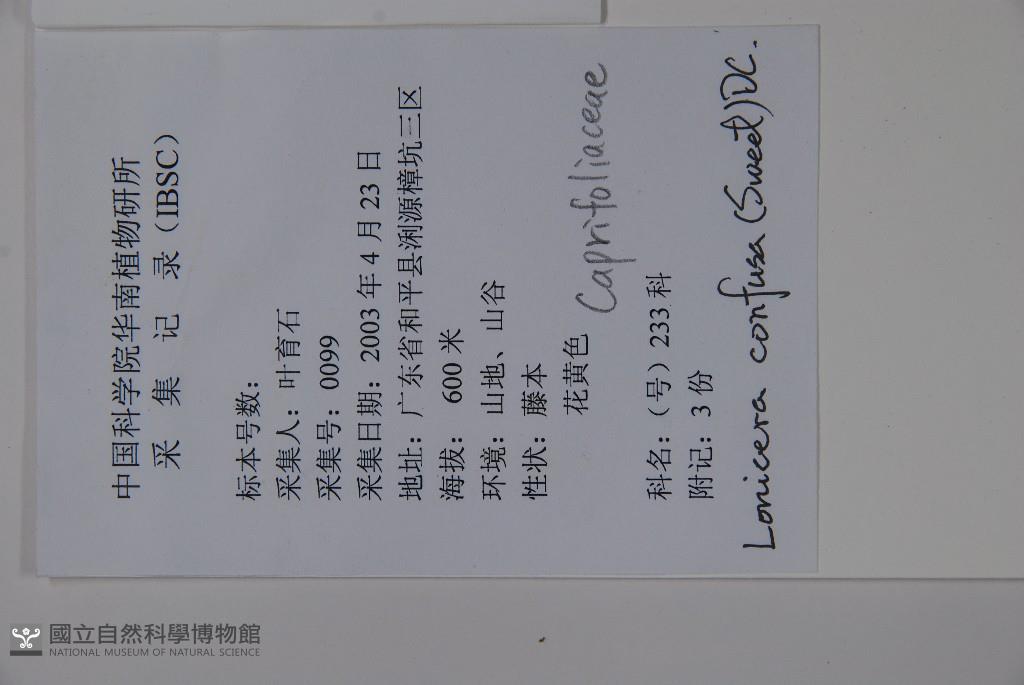 中国科学院华南植物研所
采 集 记 录（IBSC）
标本号数：
采集人：叶育石
采集号：0099
采集日期：2003 年 4 月 23 日
地址：广东省和平县浰源樟坑三区
海拔： 600 米
环境：山地、山谷
性状：藤本
花黄色
Caprifoliaceae
科名：（号）233 科
附记：3 份
Lonicera confusa (Sweet) DC.
國立自然科學博物館
NATIONAL MUSEUM OF NATURAL SCIENCE